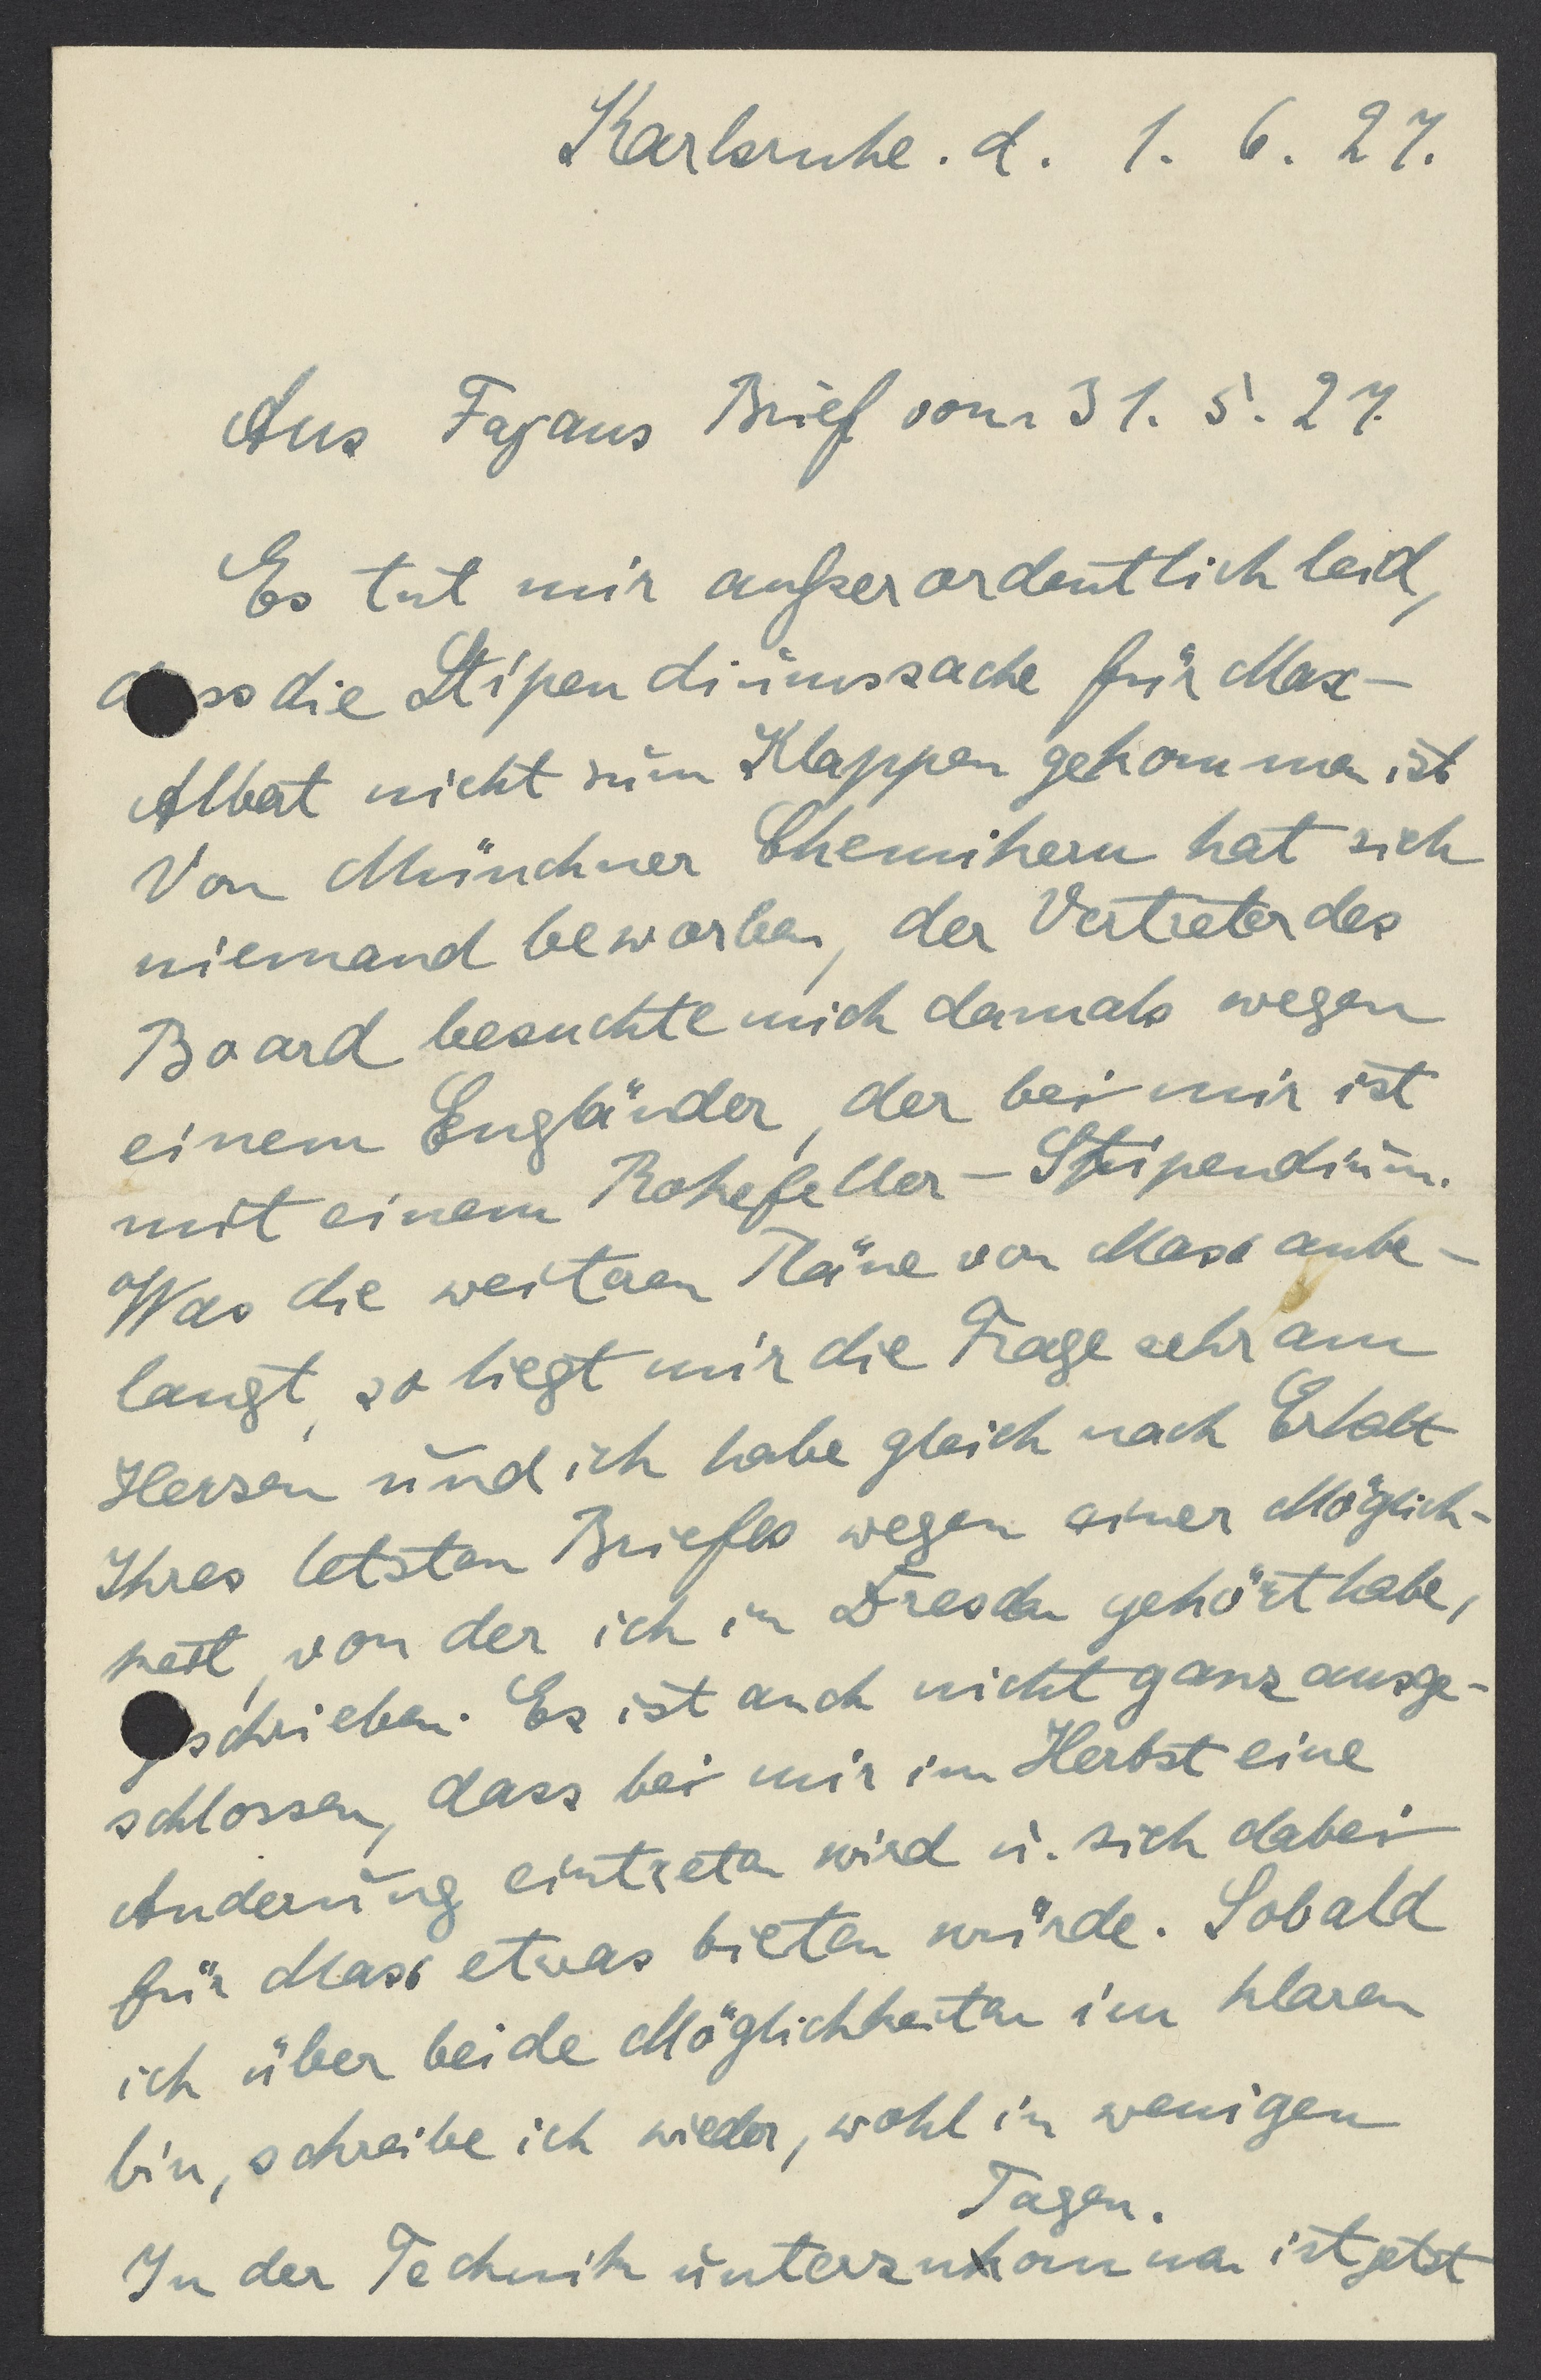 Karlsruhe. d. 1. 6. 27.
Aus Fajans Brief vom 31. 5. 27.
Es tut mir außerordentlich leid,
dass die Stipendiumssache für Max-
Albert nicht zum Klappen gekommen ist
Von Münchner Chemikern hat sich
niemand beworben, der Vertreter des
Board besuchte mich damals wegen
einem Engländer, der bei mir ist
mit einem Rokefeller-Stipendium.
Was die weiteren Pläne von Max anbe-
langt, so liegt mir die Frage sehr am
Herzen und ich habe gleich nach Erhalt
Ihres letzten Briefes wegen einer Möglich-
keit, von der ich in Dresden gehört habe,
geschrieben. Es ist auch nicht ganz ausge-
schlossen, dass bei mir im Herbst eine
Anderung eintreten wird u. sich dabei
für Max etwas bieten würde. Sobald
ich über beide Möglichkeiten im klaren
bin, schreibe ich wieder, wohl in wenigen
Tagen.
In der Technik unterzukommen ist jetzt